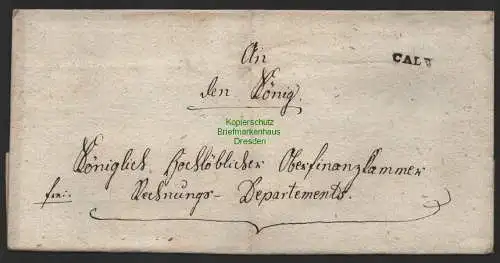 An
CALW
den König.
Kopierschutz
Briefmarkenhaus
Dresden
Königlich Hochlöblicher Oberfinanzkammer
frei. Rechnungs- Departements.